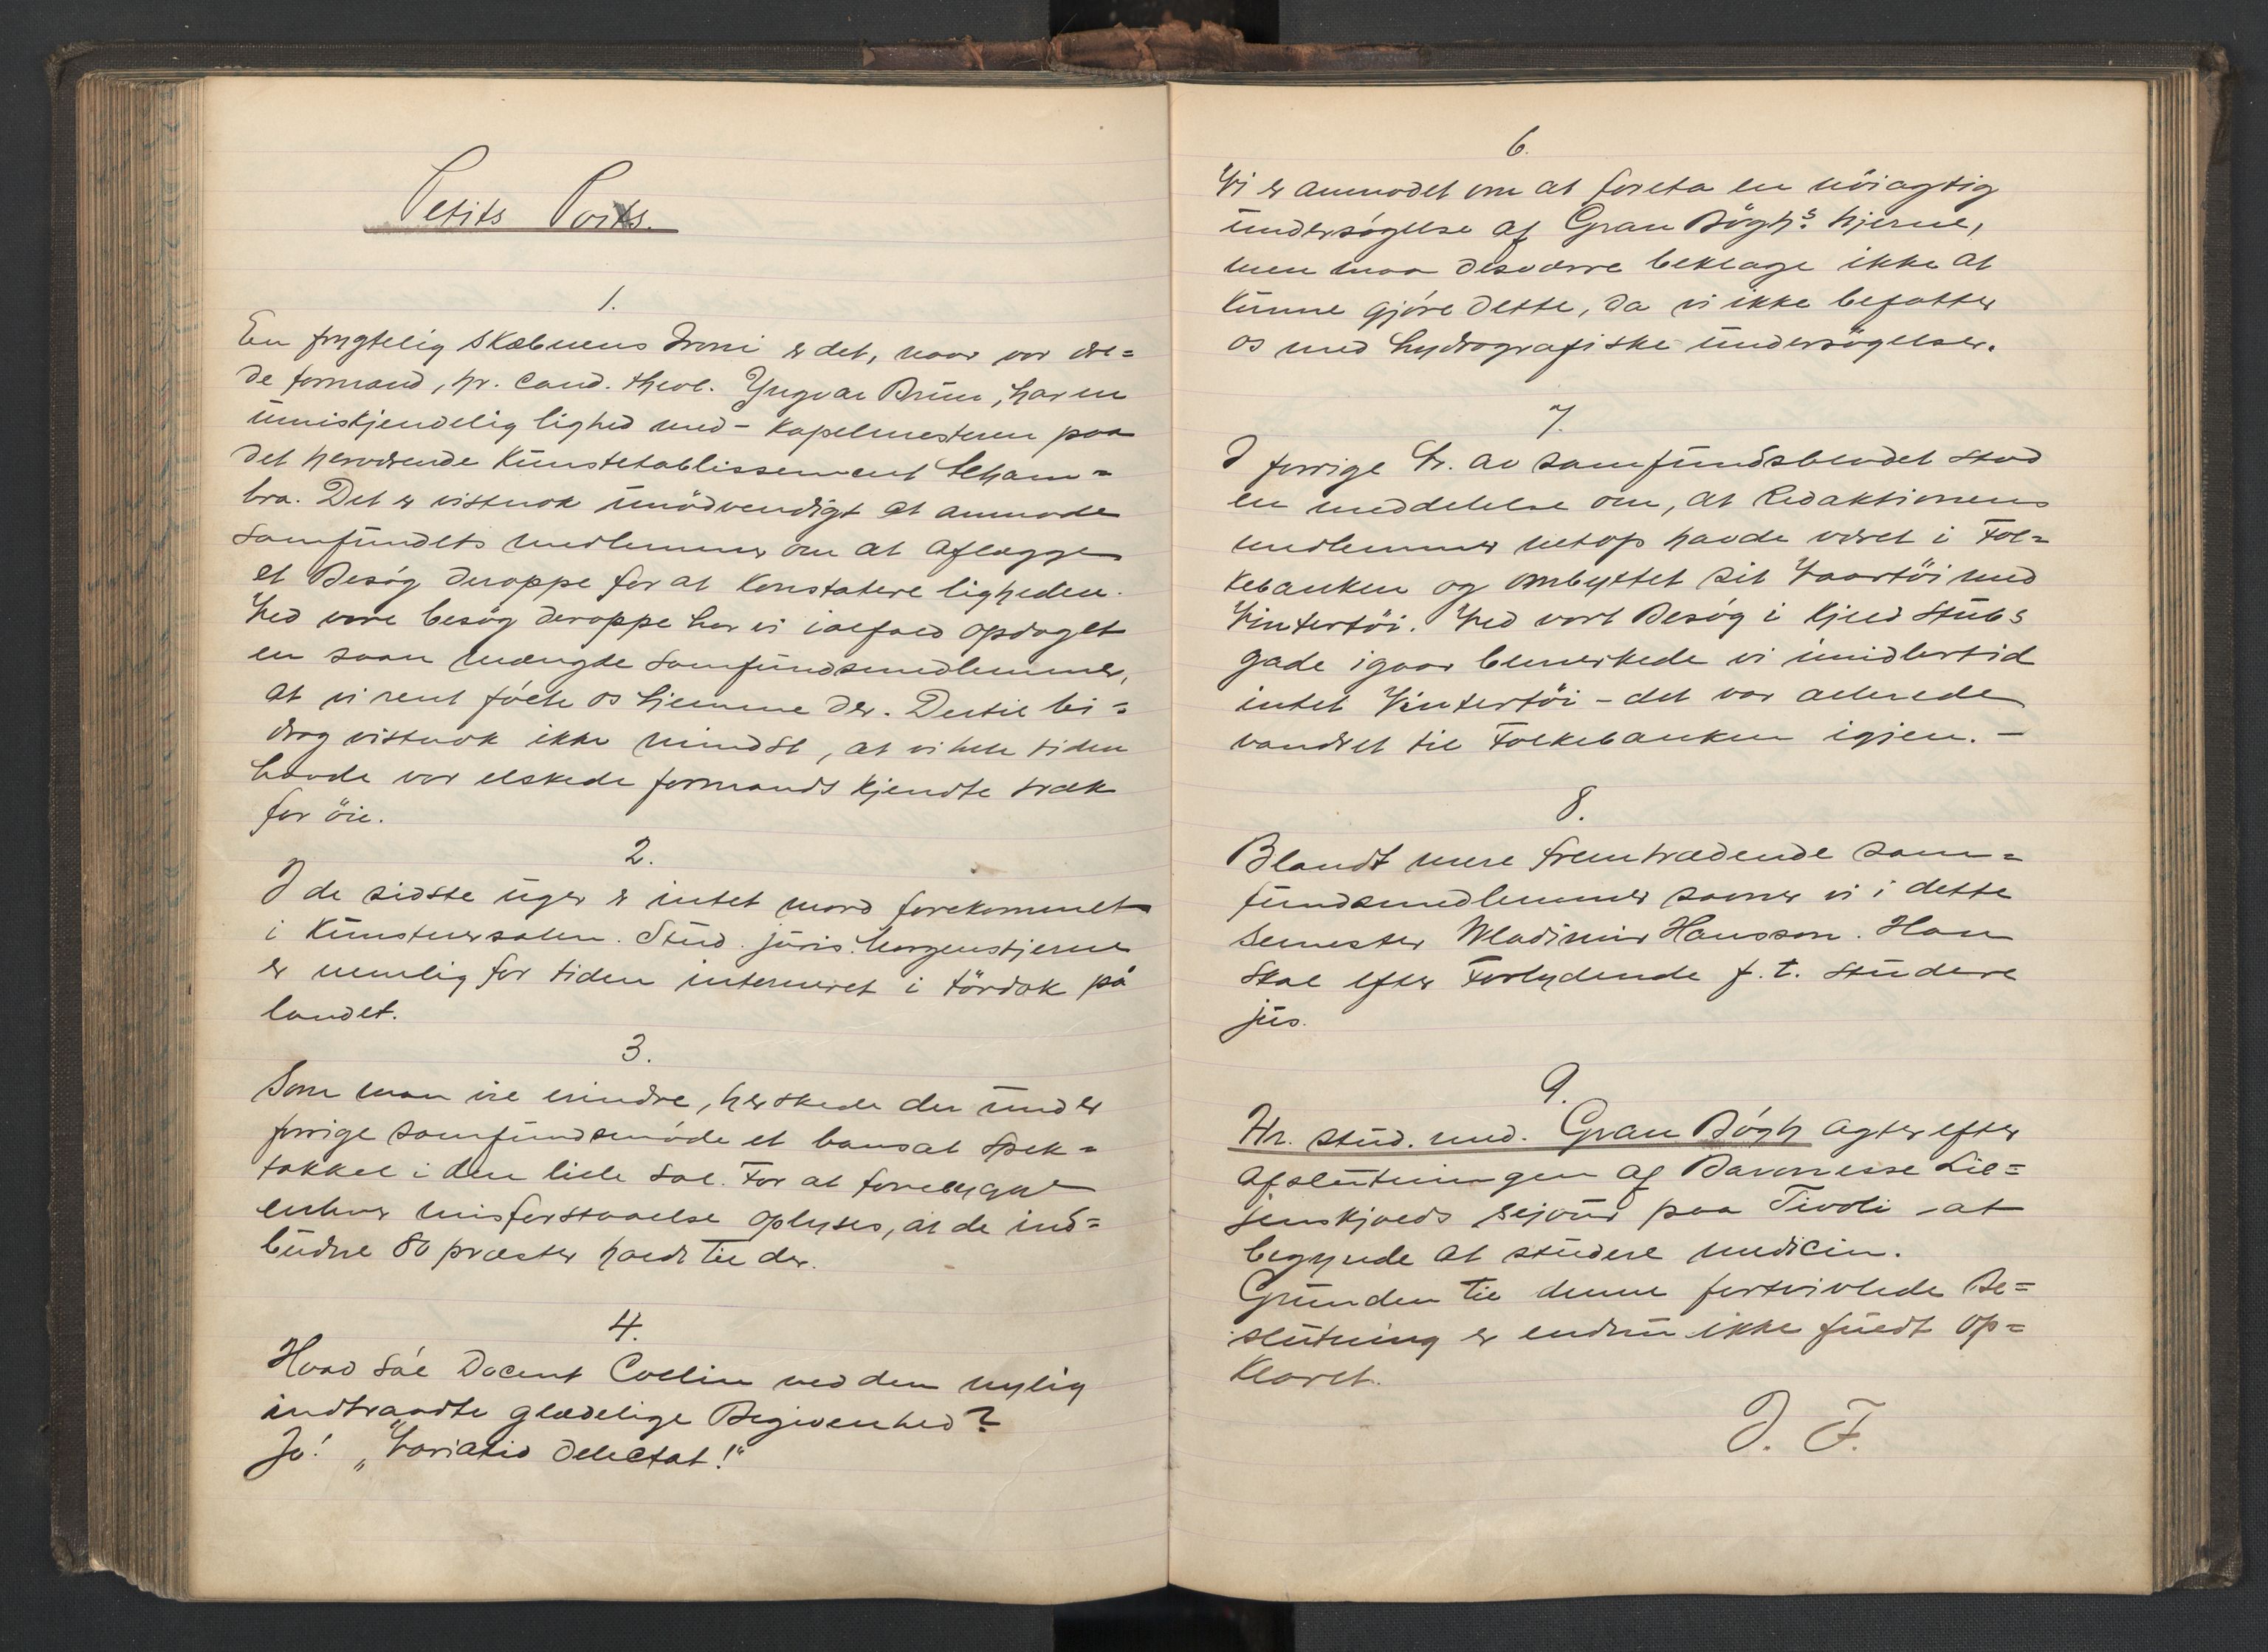 Petits Poixs.
1.
En frygtelig Skæbnens Ironi er det, naar vor ær=
de formand, hr. Cand. theol. Yngvar Brun, har en
umiskjendelig lighed med - Kapelmesteren paa
det herværende Kunstetablissement Alham=
bra. Det er vistnok unödvendigt at anmode
Samfundets medlemmer om at aflægge
et Besög deroppe for at konstatere ligheden.
Ved vore besög deroppe har vi ialfald opdaget
en saan mængde Samfundsmedlemmer,
at vi rent fölte os hjemme der. Dertil bi=
drog vistnok ikke mindst, at vi hele tiden
havde vor elskede formands kjendte træk
for öie.
2.
I de sidste uger er intet mord forekommet
i Kunstnersalen. Stud. juris. Morgenstjerne
er nemlig for tiden interneret i tördok på
landet.
3.
Som man vil erindre, herskede der under
forrige Samfundsmöde et bansat Spek=
takkel i den lille Sal. For at forebygge
enhver misforstaaelse oplyses, at de ind=
budne 80 præster holdt til der.
4.
Hvad sa'e Docent Collin ved den nylig
indtraadte glædelige Begivenhed?
Jo! „Variatio delectat!"
6.
Vi er anmodet om at foreta en nöiagtig
undersögelse af Gran Böghs hjerne,
men maa desværre beklage ikke at
kunne gjöre dette, da vi ikke befatter
os med hydrografiske undersögelser.
7.
I forrige Nr. av Samfundsbladet stod
en meddelelse om, at Redaktionens
medlemmer netop havde været i Fol=
kebanken og ombyttet sit Vaartöi med
Vintertöi. Ved vort Besög i Kjeld Stubs
gade igaar bemerkede vi imidlertid
intet Vintertöi - det var allerede
vandret til Folkebanken igjen. -
8.
Blandt mere fremtrædende Sam=
fundsmedlemmer savner vi i dette
Semester Wladimir Hansson. Han
skal efter Forlydende f. t. studere
jus.
9.
Hr. stud. med. Gran Bögh agter efter
Afslutningen af Baronesse Lil=
jenskjolds sejour paa Tivoli - at
begynde at studere medicin.
Grunden til denne fortvivlede Be=
slutning er endnu ikke fuldt op=
klaret.
J. F.